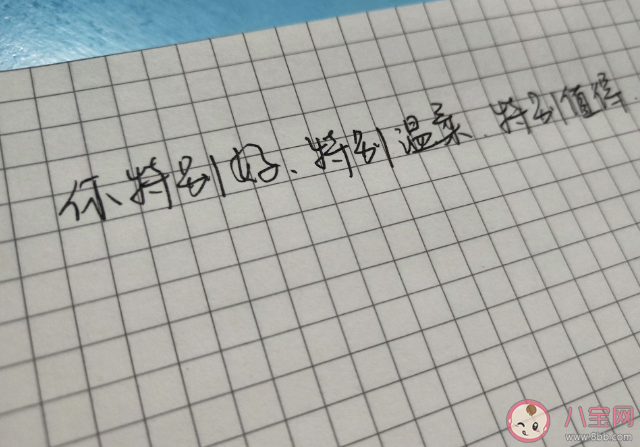 你特别好、特别温柔、特别值得.
八宝网
www.8bb.com